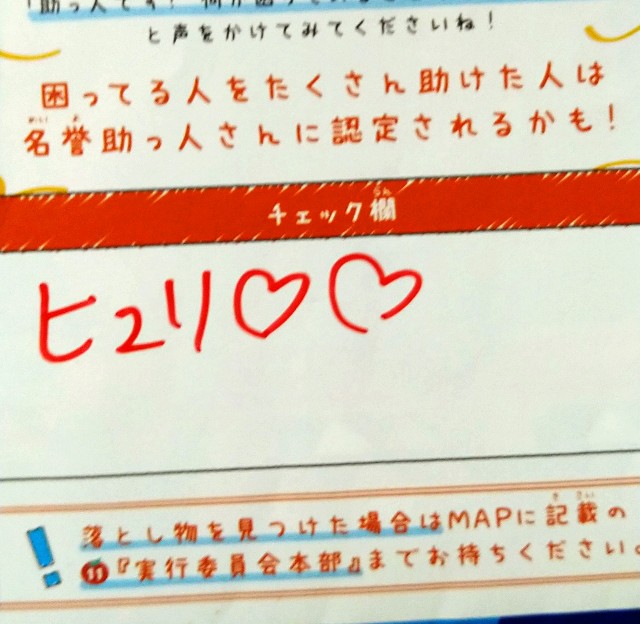 と声をかけてみてくださいね！
困ってる人をたくさん助けた人は
名誉助っ人さんに認定されるかも！
チェック欄
ヒュリ♡♡
落とし物を見つけた場合はMAPに記載の
11『実行委員会本部』までお持ちください。